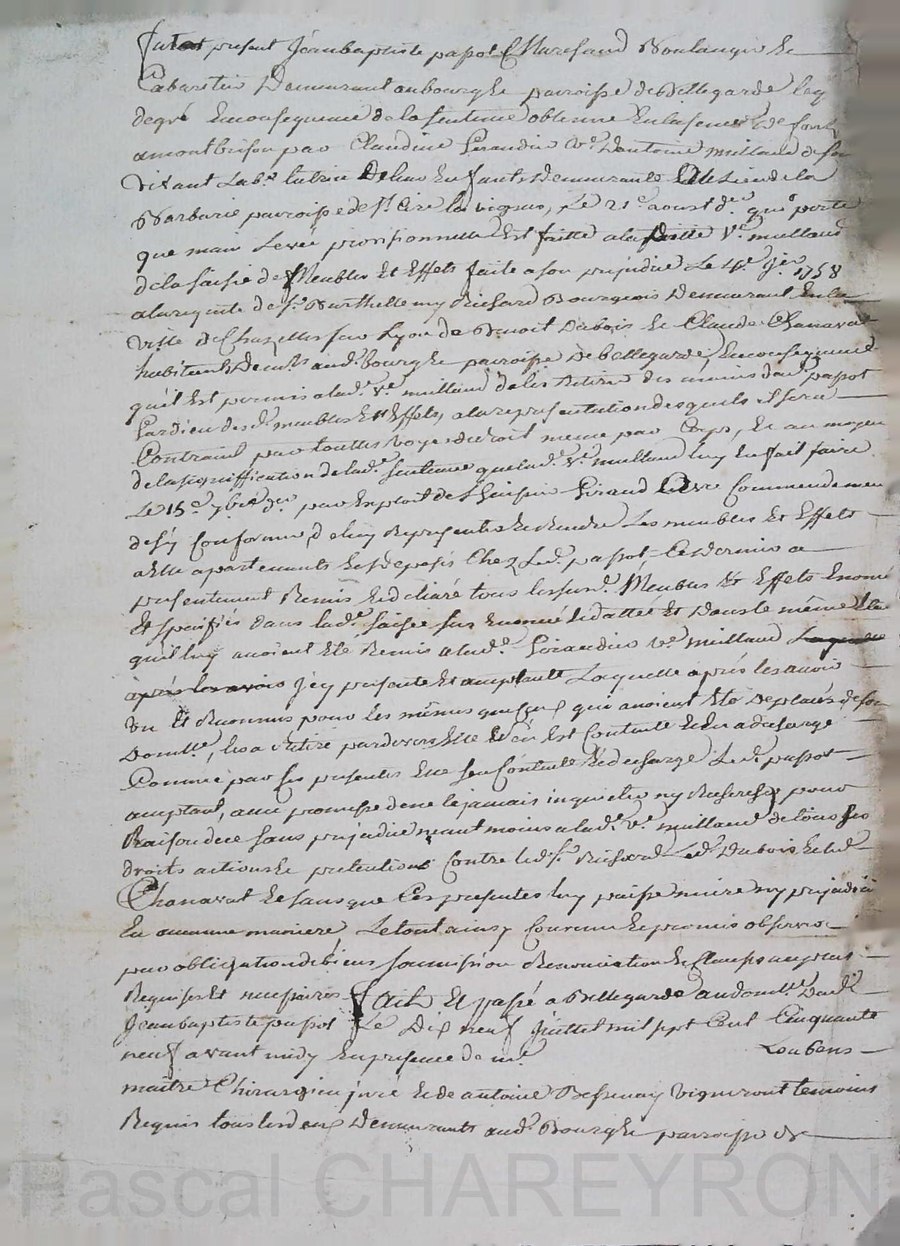 fut present Jeanbaptiste papot Marchand Boulanger &
Cabaretier Demeurant au bourg & parroisse de Bellegarde lequ
degré En consequence de la sentence obtenue En la senec de forês
a montbrison par Claudine Girardin Ve. D'antoine millaud de son
vivant Labr. tutrice De leur Enfants Demeurante Au Lieu de la
Barbarie parroisse de St. Cire les vignes, Le 21e. aoust der. qui porte
que main Levée provisionnelle Est faitte a la ditte Ve. millaud
de la saisie de Meubles Et Effets faite a son prejudice Le 1758
a la requete de Sr. Barthellemy Richard Bourgeois Demeurant En la
ville de Chazelles sur Lyon de Benoit Dubois & Claude Chanavat
habitants De aud. bourg & parroisse De bellegarde, En consequence
qu'il Est permis a lad. Ve. millaud de les Retirer des mains dud. papot
Gardien desd. meubles Et Effets, a la representation desquels il sera
Contraint par touttes voyes de droit meme par Corps, Et au moyen
de la signiffication de lad. Sentence que lad. Ve. millaud luy En fait faire
Le 15e. 7bre der. par Exploit de Girard Avec Commendemen
de s'y Conformer, & de luy Representer & Rendre Les meubles Et Effets
a Elle apartenants & deposés Chez Led. papot, Ce dernier a
presentement Remis & delivré tous les susd. Meubles & Effets Enoncé
Et speciffiés Dans lad. saisie sus Enoncée & dattée Et Dans le même Eta
qu'il luy avoient Eté Remis a lad. Girardin Ve. millaud Laquelle
après les avoir Icy presente Et acceptante Laquelle après les avoir
vu Et Reconnus pour Les mêmes que ceux qui avoient Eté Deplacés de son
Domille., les a Retiré par devers Elle Et En Est Contente & En a decharge
Comme par ces presentes Elle s'en Contente & decharge Led. papot
acceptant, avec promesse de ne le jamais inquieter ny Rechercher pour
Raison de ce sans prejudice neantmoins a lad. Ve. millaud de tous ses
droits actions & pretentions Contre led. Sr. Richard Led. Dubois & led.
Chanavat & sans que Ces presentes luy puisse nuire ny prejudicier
En aucune maniere, Le tout ainsy Convenu & promis observer
par obligation de biens soumission Renonciation & Clauses
Requises Et necessaires fait Et passé a Bellegarde au domille. Dud.
Jeanbaptiste papot Le Dix neuf Juillet mil sept Cent Cinquante
neuf avant midy En presence de me. Loubens
maître Chirurgien juré & de antoine Bessenay vigneront temoins
Requis tous les deux Demeurants aud. Bourg & parroisse de
Pascal CHAREYRON